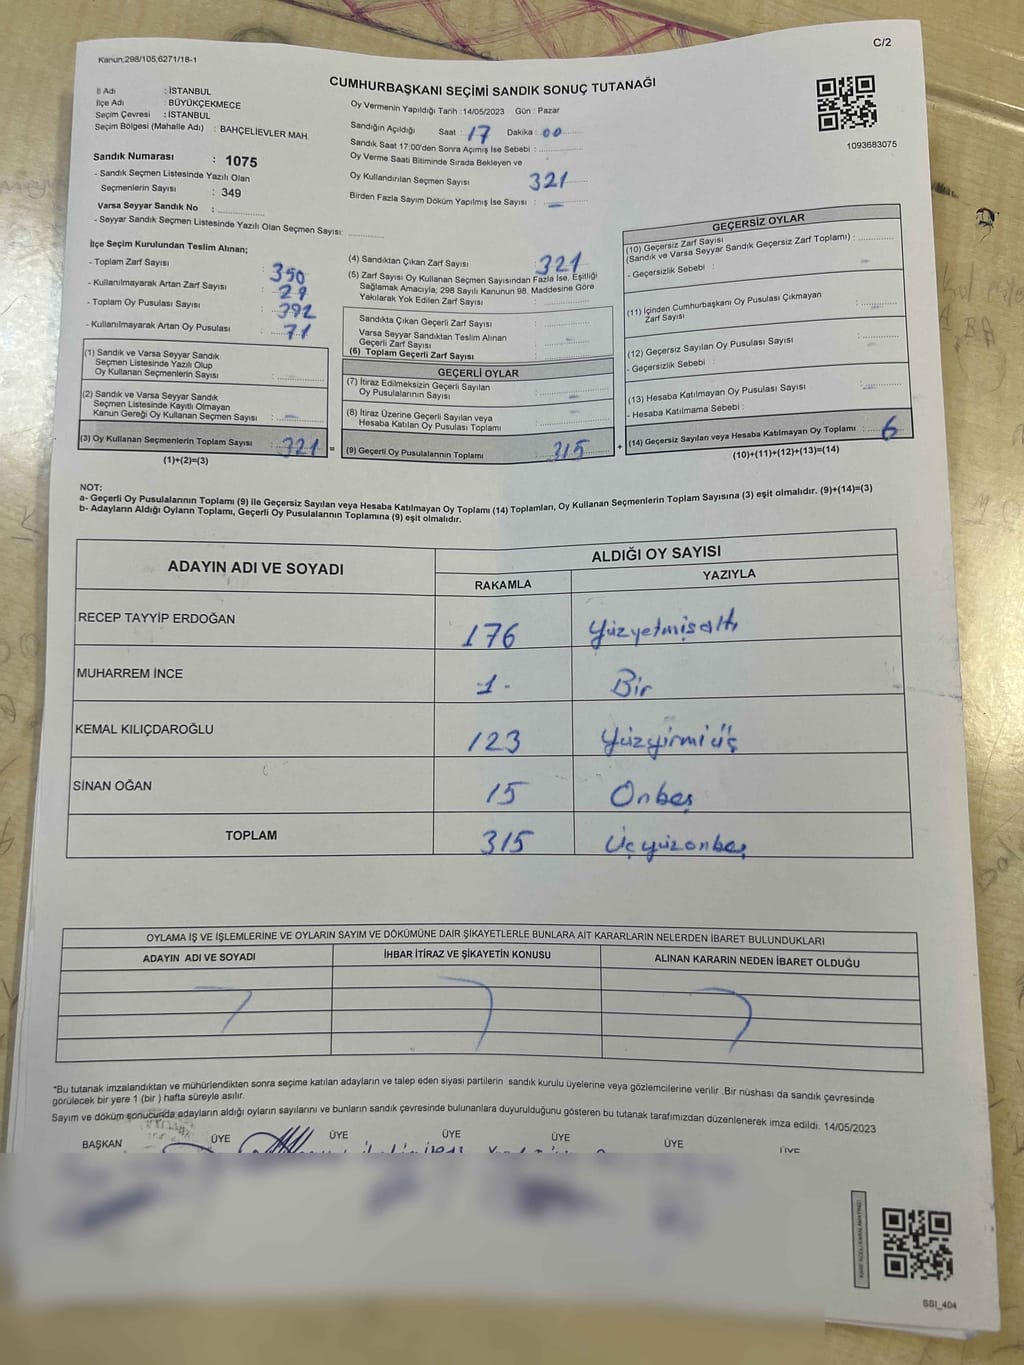 Kanun;298/105,6271/18-1
C/2
CUMHURBAŞKANI SEÇİMİ SANDIK SONUÇ TUTANAĞI
İl Adı : İSTANBUL
İlçe Adı : BÜYÜKÇEKMECE
Seçim Çevresi : İSTANBUL
Seçim Bölgesi (Mahalle Adı) : BAHÇELİEVLER MAH.
Sandık Numarası : 1075
- Sandık Seçmen Listesinde Yazılı Olan
Seçmenlerin Sayısı : 349
Varsa Seyyar Sandık No :
- Seyyar Sandık Seçmen Listesinde Yazılı Olan Seçmen Sayısı:
Oy Vermenin Yapıldığı Tarih : 14/05/2023 Gün : Pazar
Sandığın Açıldığı Saat : 17 Dakika : 00
Sandık Saat 17:00'den Sonra Açımış İse Sebebi :
Oy Verme Saati Bitiminde Sırada Bekleyen ve
Oy Kullandırılan Seçmen Sayısı 321
Birden Fazla Sayım Döküm Yapılmış İse Sayısı : -
1093683075
İlçe Seçim Kurulundan Teslim Alınan;
- Toplam Zarf Sayısı : 350
- Kullanılmayarak Artan Zarf Sayısı : 29
- Toplam Oy Pusulası Sayısı : 392
- Kullanılmayarak Artan Oy Pusulası : 71
(1) Sandık ve Varsa Seyyar Sandık
Seçmen Listesinde Yazılı Olup
Oy Kullanan Seçmenlerin Sayısı : -
(2) Sandık ve Varsa Seyyar Sandık
Seçmen Listesinde Kayıtlı Olmayan
Kanun Gereği Oy Kullanan Seçmen Sayısı : -
(3) Oy Kullanan Seçmenlerin Toplam Sayısı : 321 =
(1)+(2)=(3)
(4) Sandıktan Çıkan Zarf Sayısı : 321
(5) Zarf Sayısı Oy Kullanan Seçmen Sayısından Fazla İse, Eşitliği
Sağlamak Amacıyla; 298 Sayılı Kanunun 98. Maddesine Göre
Yakılarak Yok Edilen Zarf Sayısı :
Sandıkta Çıkan Geçerli Zarf Sayısı :
Varsa Seyyar Sandıktan Teslim Alınan
Geçerli Zarf Sayısı : -
(6) Toplam Geçerli Zarf Sayısı :
GEÇERLİ OYLAR
(7) İtiraz Edilmeksizin Geçerli Sayılan
Oy Pusulalarının Sayısı : -
(8) İtiraz Üzerine Geçerli Sayılan veya
Hesaba Katılan Oy Pusulası Toplamı : -
(9) Geçerli Oy Pusulalarının Toplamı 315 +
GEÇERSİZ OYLAR
(10) Geçersiz Zarf Sayısı
(Sandık ve Varsa Seyyar Sandık Geçersiz Zarf Toplamı) : -
- Geçersizlik Sebebi :
(11) İçinden Cumhurbaşkanı Oy Pusulası Çıkmayan
Zarf Sayısı : -
(12) Geçersiz Sayılan Oy Pusulası Sayısı : -
- Geçersizlik Sebebi :
(13) Hesaba Katılmayan Oy Pusulası Sayısı : -
- Hesaba Katılmama Sebebi :
(14) Geçersiz Sayılan veya Hesaba Katılmayan Oy Toplamı : 6
(10)+(11)+(12)+(13)=(14)
NOT:
a- Geçerli Oy Pusulalarının Toplamı (9) ile Geçersiz Sayılan veya Hesaba Katılmayan Oy Toplamı (14) Toplamları, Oy Kullanan Seçmenlerin Toplam Sayısına (3) eşit olmalıdır. (9)+(14)=(3)
b- Adayların Aldığı Oyların Toplamı, Geçerli Oy Pusulalarının Toplamına (9) eşit olmalıdır.
ADAYIN ADI VE SOYADI
ALDIĞI OY SAYISI
RAKAMLA YAZIYLA
RECEP TAYYİP ERDOĞAN 176 Yüzyetmişaltı
MUHARREM İNCE -1- Bir
KEMAL KILIÇDAROĞLU 123 Yüzyirmiüç
SİNAN OĞAN 15 Onbeş
TOPLAM 315 Üçyüzonbeş
OYLAMA İŞ VE İŞLEMLERİNE VE OYLARIN SAYIM VE DÖKÜMÜNE DAİR ŞİKAYETLERLE BUNLARA AİT KARARLARIN NELERDEN İBARET BULUNDUKLARI
ADAYIN ADI VE SOYADI İHBAR İTİRAZ VE ŞİKAYETİN KONUSU ALINAN KARARIN NEDEN İBARET OLDUĞU
*Bu tutanak imzalandıktan ve mühürlendikten sonra seçime katılan adayların ve talep eden siyasi partilerin sandık kurulu üyelerine veya gözlemcilerine verilir .Bir nüshası da sandık çevresinde
görülecek bir yere 1 (bir ) hafta süreyle asılır.
Sayım ve döküm sonucunda adayların aldığı oyların sayılarını ve bunların sandık çevresinde bulunanlara duyurulduğunu gösteren bu tutanak tarafımızdan düzenlenerek imza edildi. 14/05/2023
BAŞKAN ÜYE ÜYE ÜYE ÜYE ÜYE ÜYE
SSI_404